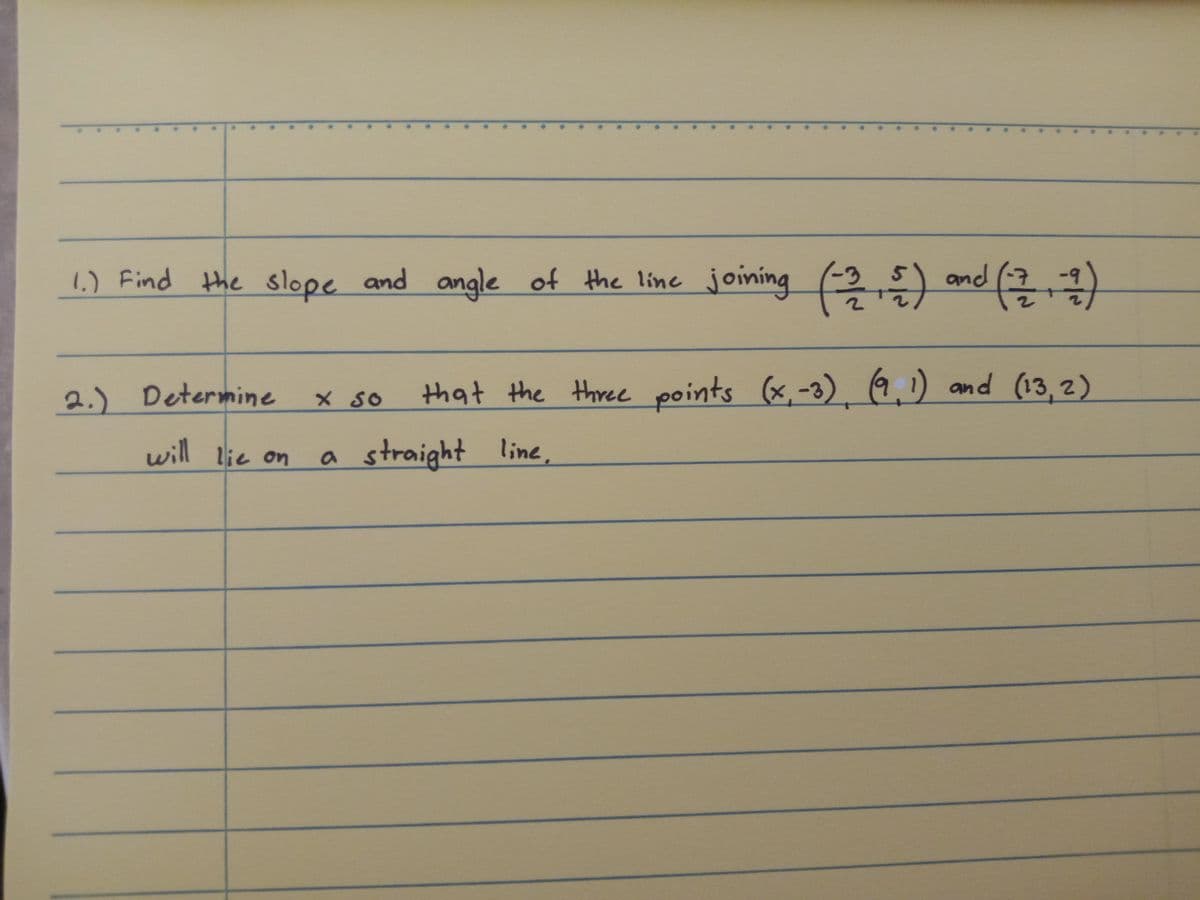 1.) Find the slope and angle of the line joining (-3/2, 5/2) and (-7/2, -9/2)
2.) Determine x so that the three points (x,-3), (9,1) and (13,2)
will lie on a straight line.